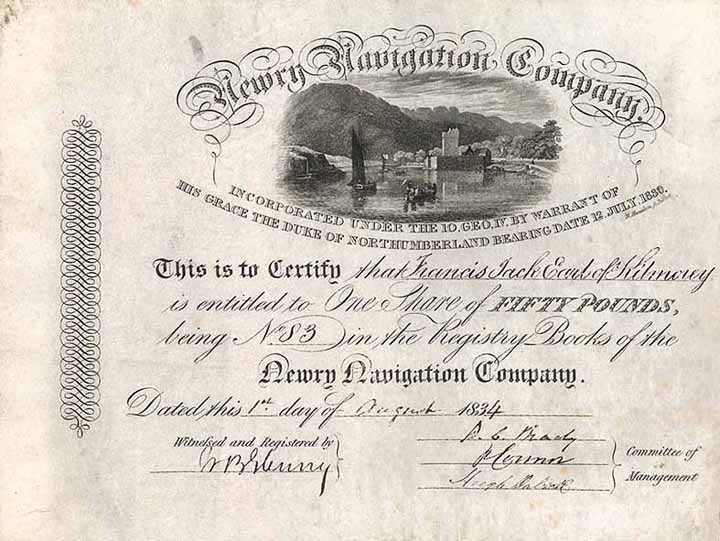 Newry Navigation Company.
INCORPORATED UNDER THE 10. GEO. IV. BY WARRANT OF
HIS GRACE THE DUKE OF NORTHUMBERLAND BEARING DATE 12 JULY, 1830.
This is to Certify that Francis Jack Earl of Kilmorey
is entitled to One Share of FIFTY POUNDS,
being No. 83 in the Registry Books of the
Newry Navigation Company.
Dated this 1st day of August 1834
Witnessed and Registered by
Committee of
Management